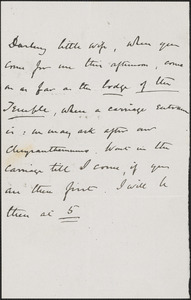 Darling little wife, when you
come for me this afternoon, come
in as far as the lodge of the
Temple, where a carriage entrance
is: we may ask after our
Chrysanthemums. Wait in the
carriage till I come, if you
are there first. I will be
there at 5